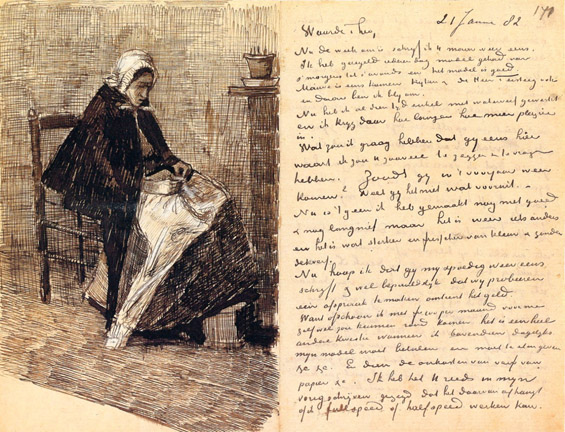 21 Januarij 82
Waarde Theo,
Nu de week om is schrijf ik U maar weer eens.
Ik heb geregeld iederen dag model gehad van
's morgens tot 's avonds en het model is goed
Mauve is eens komen kijken & de Heer Tersteeg ook
en daar ben ik bly om.
Nu heb ik al den tyd enkel met waterverf gewerkt
en ik kryg daar hoe langer hoe meer pleizier
in.
Wat zou ik graag hebben dat gy eens hier
waart ik zou U zooveel te zeggen & te vragen
hebben. Zoudt gy in 't voorjaar weer
komen? Weet gy het met wat vooruit.
Nu is 't geen ik heb gemaakt nog niet goed
& nog lang niet maar het is weer iets anders
en het is wat sterker en frisscher van kleur & zonder
dekverf.
Nu hoop ik dat gy my spoedig weer eens
schryft & wel bepaaldelyk dat wy probeeren
een afspraak te maken omtrent het geld.
Want ofschoon ik met per maand voor me
zelf wel zou kunnen rond komen het is een heel
andere kwestie wanneer ik bovendien dagelyks
myn model moet betalen en moet te eten geven
&c &c. En dan de onkosten van verf van
papier &c. Ik heb het U reeds in myn
vorig schryven gezegd dat het daarvan afhangt
of ik full speed of half speed werken kan.